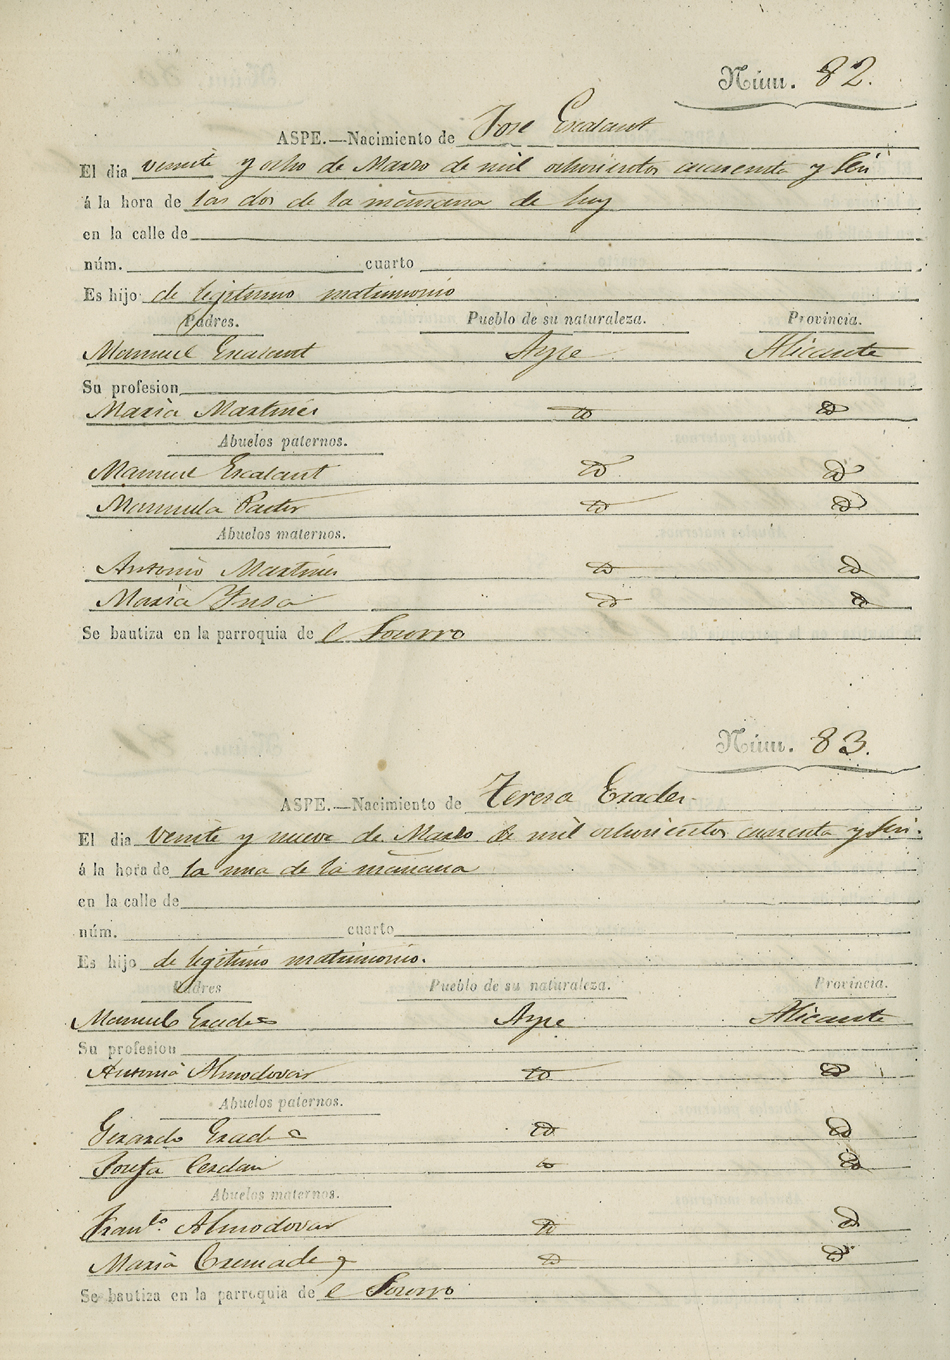 Núm. 82.
ASPE.—Nacimiento de Jose Escalant
El dia veinte y ocho de Marzo de mil ochocientos cuarenta y seis
á la hora de las dos de la mañana de hoy
en la calle de
núm. cuarto
Es hijo de legitimo matrimonio
Padres. Pueblo de su naturaleza. Provincia.
Manuel Escalant Aspe Alicante
Su profesion
Maria Martines id id
Abuelos paternos.
Manuel Escalant id id
Manuela Pastor id id
Abuelos maternos.
Antonio Martines id id
Maria Insa id id
Se bautiza en la parroquia de l Socorro
Núm. 83.
ASPE.—Nacimiento de Teresa
El dia veinte y nueve de Marzo de mil ochocientos cuarenta y seis.
á la hora de la una de la mañana
en la calle de
núm. cuarto
Es hijo de legitimo matrimonio.
Padres Pueblo de su naturaleza. Provincia.
Manuel Aspe Alicante
Su profesion
Antonia Almodovar id id
Abuelos paternos.
Gerardo id id
Josefa Cerdan id id
Abuelos maternos.
Fran.co Almodovar id id
Maria Cremades id id
Se bautiza en la parroquia de l Socorro